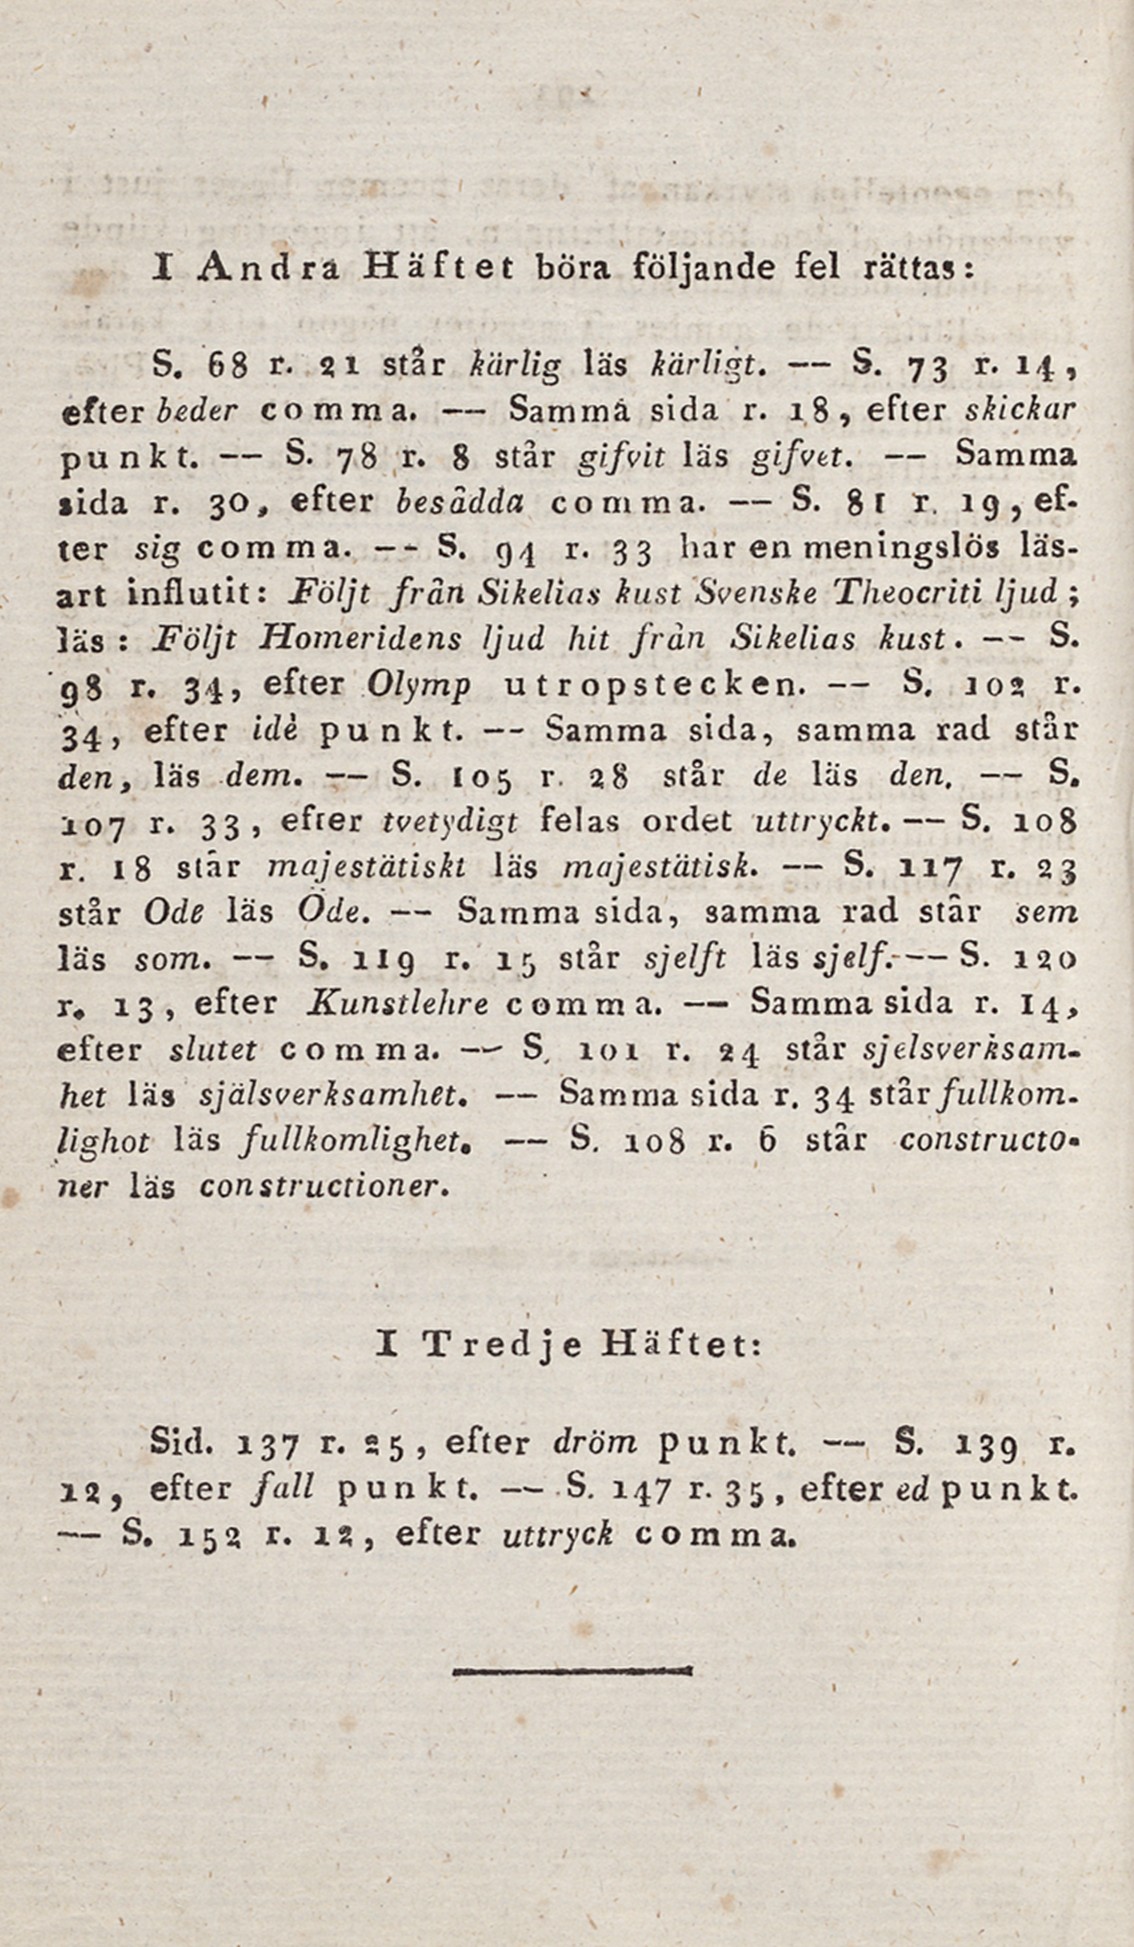 I Andra Häftet böra följande fel rättas:
S. 68 r. 21 står kärlig läs kärligt. — S. 73 r. 14,
efter beder comma. — Samma sida r. 18, efter skickar
punkt. — S. 78 r. 8 står gifvit läs gifvet. — Samma
sida r. 30, efter besådda comma. — S. 81 r. 19, ef-
ter sig comma. — S. 94 r. 33 har en meningslös läs-
art influtit: Följt från Sikelias kust Svenske Theocriti ljud;
läs: Följt Homeridens ljud hit från Sikelias kust. — S.
98 r. 34, efter Olymp utropstecken. — S. 102 r.
34, efter idè punkt. — Samma sida, samma rad står
den, läs dem. — S. 105 r. 28 står de läs den. — S.
107 r. 33, efter tvetydigt felas ordet uttryckt. — S. 108
r. 18 står majestätiskt läs majestätisk. — S. 117 r. 23
står Ode läs Öde. — Samma sida, samma rad står sem
läs som. — S. 119 r. 15 står sjelft läs sjelf. — S. 120
r. 13, efter Kunstlehre comma. — Samma sida r. 14,
efter slutet comma. — S. 101 r. 24 står sjelsverksam-
het läs själsverksamhet. — Samma sida r. 34 står fullkom-
lighot läs fullkomlighet. — S. 108 r. 6 står constructo-
ner läs constructioner.
I Tredje Häftet:
Sid. 137 r. 25, efter dröm punkt. — S. 139 r.
12, efter fall punkt. — S. 147 r. 35, efter ed punkt.
— S. 152 r. 12, efter uttryck comma.